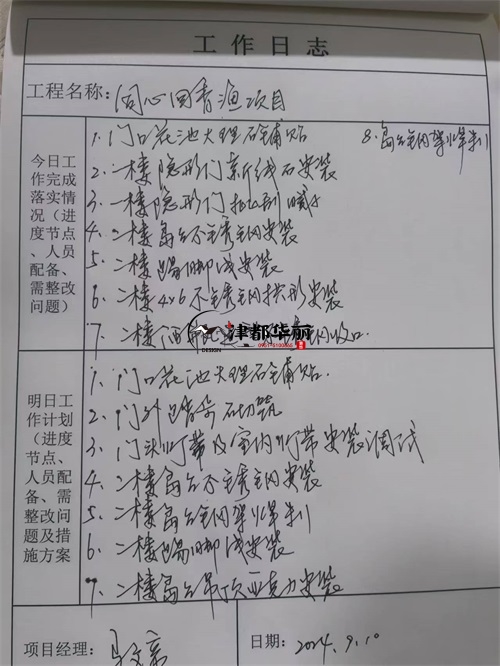 工作日志
工程名称: 同心回香渔项目
今日工作完成落实情况(进度节点、人员配备、需整改问题)
1. 门口花池大理石铺贴
2. 一楼隐形门新线石安装
3. 一楼隐形门
4. 二楼岛台不锈钢安装
5. 二楼踢脚线安装
6. 二楼4x6不锈钢拱形安装
7. 二楼 收口.
8. 岛台钢架焊制
津都华丽
DESIGN
0951-8193555
明日工作计划(进度节点、人员配备、需整改问题及措施方案
1. 门口花池大理石铺贴.
2. 门外 砌筑
3. 门头灯带及室内灯带安装调试
4. 二楼岛台不锈钢安装
5. 二楼岛台钢架焊制
6. 二楼踢脚线安装
7. 二楼岛台吊顶亚克力安装
项目经理:
日期: 2024.9.10